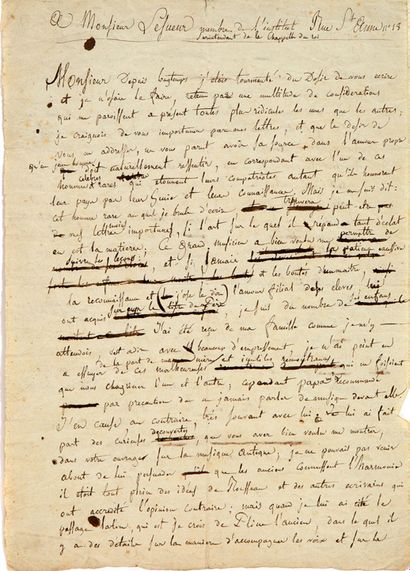 A Monsieur Lesueur membre de l'institut Rue Ste Anne n° 18
surintendant de la Chappelle du roi
Monsieur Depuis longtemps j'étais tourmenté du Desir de vous ecrire
et je n'osois le faire, retenu par une multitude de considerations
qui me paroissent a present toutes plus ridicules les unes que les autres;
je craignois de vous importuner par mes lettres, et que le desir de
vous en addresser, ne vous parut avoir sa source dans l'amour propre
qu'un jeune homme doit naturellement ressentir, en correspondant avec l'un de ces
hommes célèbres rares qui etonnent leurs compatriotes autant qu'ils honorent
leur pays par leur Genie et leur connaissance. Mais je me suis dit:
cet homme rare au quel je brule d'ecrire, trouvera peut etre
mes lettres moins importunes, si l'art sur le quel il répand tant d'éclat
en est la matiere. Ce Grand musicien a bien voulu me permettre de
suivre ses leçons, et si jamais
les bontés d'un maitre,
la reconnaissance et (si j'ose le dire) l'amour filial de ses eleves, lui
ont acquis sur eux le titre de Père, je suis du nombre de ses enfans.
J'ai été reçu de ma famille comme je m'y
attendois, c'est adire avec beaucoup d'empressement, je n'ai point eu
a essuyer de la part de maman de ces malheureuses et inutiles remontrances, qui ne faisoient
que nous chagriner l'un et l'autre; cependant papa recommande
par precaution de ne jamais parler de musique devant elle.
J'en cause au contraire, très souvent avec lui, je lui ai fait
part des curieuses decouvertes, que vous avez bien voulu me montrer,
dans votre ouvrage sur la musique Antique, je ne pouvais pas venir
about de lui persuader que les anciens connussent l'harmonie
il étoit tout plein des idées de Rousseau et des autres ecrivains qui
ont accredité l'opinion contraire; mais quand je lui ai cité le
passage latin, qui est je crois de Pline l'ancien, dans le quel il
y a des details sur la maniere d'accompagner les voix et sur la